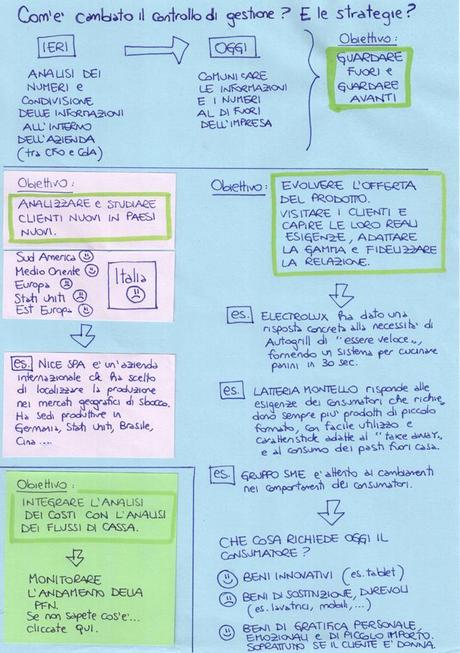 Com'e' cambiato il controllo di gestione? E le strategie?
IERI
OGGI
ANALISI DEI
NUMERI e
CONDIVISIONE
DELLE INFORMAZIONI
ALL'INTERNO
DELL'AZIENDA
(tra CFO e CdA)
COMUNICARE
LE INFORMAZIONI
E I NUMERI
AL DI FUORI
DELL'IMPRESA
Obiettivo:
GUARDARE
FUORI e
GUARDARE
AVANTI
Obiettivo:
ANALIZZARE e STUDIARE
CLIENTI NUOVI IN PAESI
NUOVI.
Sud America
Medio Oriente
Europa
Stati Uniti
Est Europa
Italia
es. NICE SPA e' un'azienda
internazionale che ha scelto
di localizzare la produzione
nei mercati geografici di sbocco.
Ha sedi produttive in
Germania, Stati Uniti, Brasile,
Cina....
Obiettivo:
INTEGRARE L'ANALISI
DEI COSTI CON L'ANALISI
DEI FLUSSI DI CASSA.
MONITORARE
L'ANDAMENTO DELLA
PFN.
Se non sapete cos'e'...
cliccate qui.
Obiettivo:
EVOLVERE L'OFFERTA
DEL PRODOTTO.
VISITARE I CLIENTI E
CAPIRE LE LORO REALI
ESIGENZE, ADATTARE
LA GAMMA e FIDELIZZARE
LA RELAZIONE.
es. ELECTROLUX ha dato una
risposta concreta alla necessita' di
Autogrill di "essere veloce",
fornendo un sistema per cucinare
panini in 30 sec.
es. LATTERIA MONTELLO risponde alle
esigenze dei consumatori che richie
dono sempre piu' prodotti di piccolo
formato, con facile utilizzo e
caratteristiche adatte al "take away"
e al consumo dei pasti fuori casa.
es. GRUPPO SME e' attento ai cambiamenti
nei comportamenti dei consumatori.
CHE COSA RICHIEDE OGGI IL
CONSUMATORE?
BENI INNOVATIVI (es. tablet)
BENI DI SOSTITUZIONE, DUREVOLI
(es. lavatrici, mobili,...)
BENI DI GRATIFICA PERSONALE,
EMOZIONALI E DI PICCOLO IMPORTO.
SOPRATTUTTO SE IL CLIENTE E' DONNA.